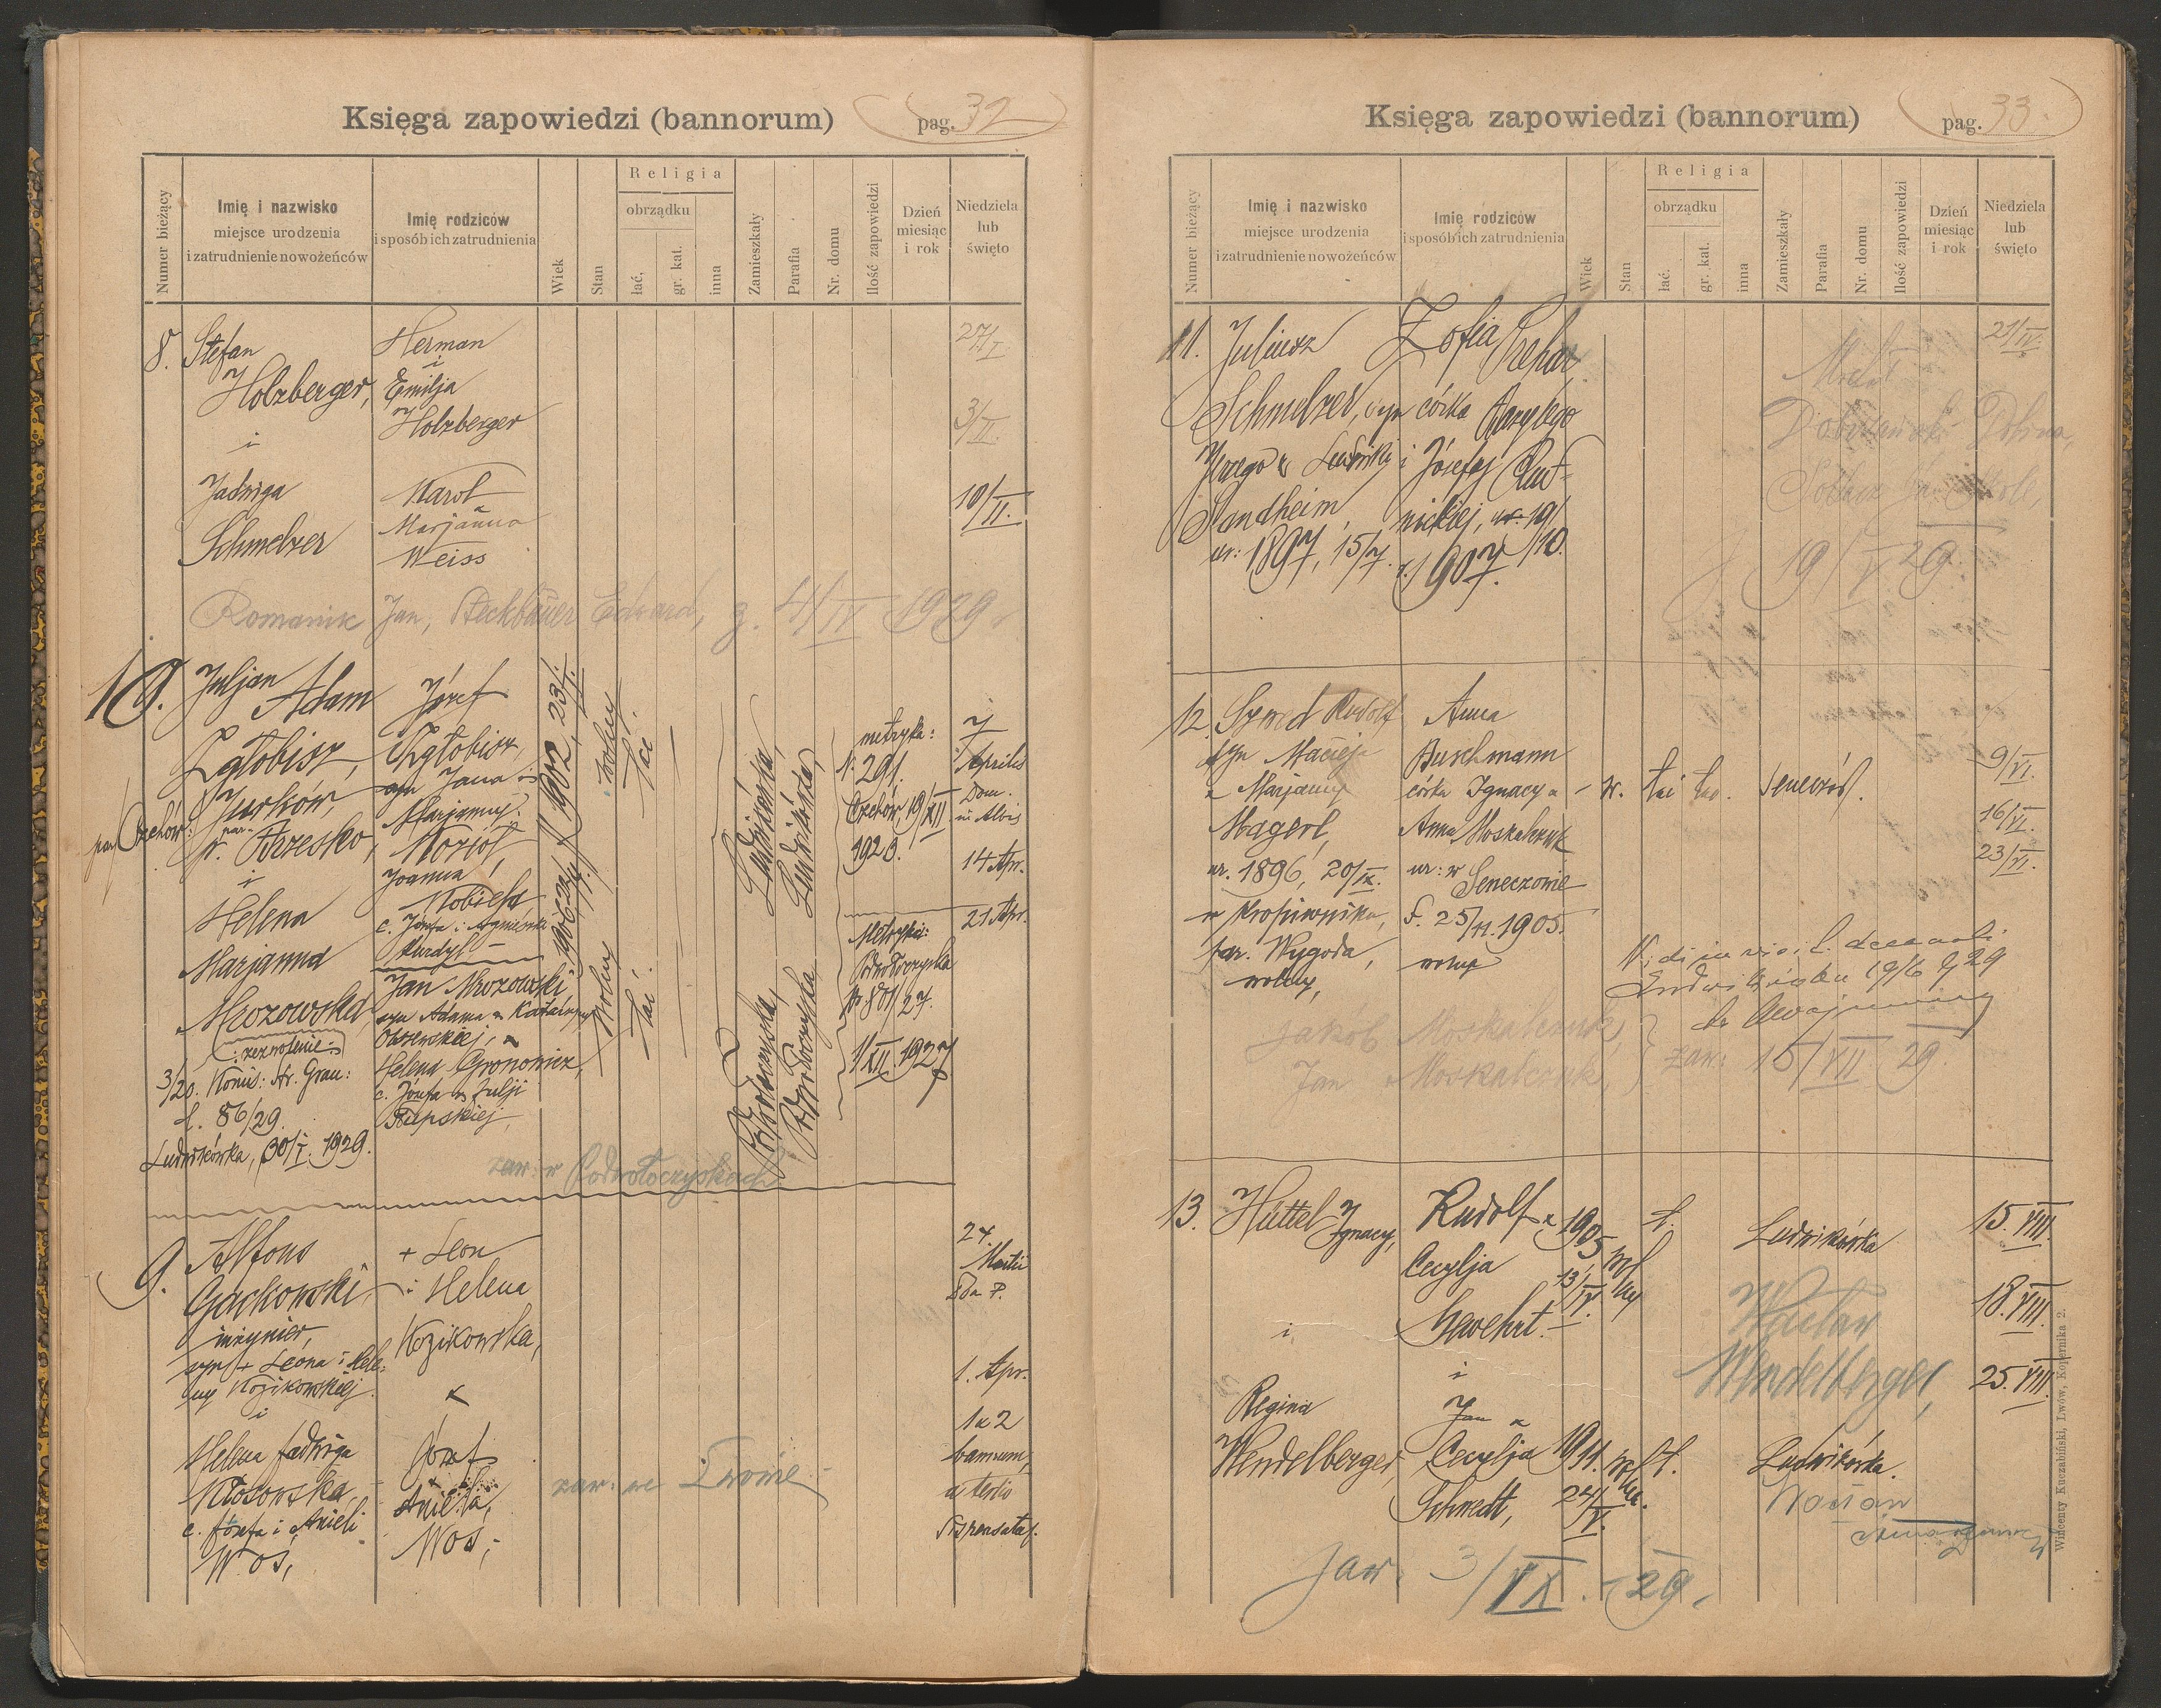 Księga zapowiedzi (bannorum)
pag. 32
Numer bieżący
Imię i nazwisko
miejsce urodzenia
i zatrudnienie nowożeńców
Imię rodziców
i sposób ich zatrudnienia
Wiek
Stan
Religia
obrządku
łać.
gr. kat.
inna
Zamieszkały
Parafia
Nr. domu
Ilość zapowiedzi
Dzień
miesiąc
i rok
Niedziela
lub
święto
8. Stefan Herman 27/I
i
Holzberger, Emilja
Holzberger 3/II.
i
Jadwiga Karol 10/II.
Marjanna
Schmelzer Weiss
Romanik Jan, Steckbauer Edward, z. 4/IV 1929
10. Juljan
Adam Józef
Zgłobisz, Zgłobisz,
Jurków, syn Jana i
par. Czchów: Marjanny
p. Brzesko, Kozioł,
i Joanna
Kobiela
Helena c. Józefa i Agnieszki
Marjanna Kurdyl
Mrozowska Jan Mrozowski
syn Adama i Katarzyny
: zezwolenie : Olszewskiej, i
3/20. Komis: Str. Gran: Helena Gronowicz,
L. 86/29. c. Józefa i Julji
Słupskiej,
Ludwikówka, 30/I. 1929.
1902, 23/I.
wolny
łać.
Ludwikówka,
Ludwikówka,
metryka:
N: 291.
Czchów, 19/XII
1928.
7
Aprilis
Dom.
in Albis
14 Apr.
21 Apr.
wolna
łać.
Podwołoczyska,
Podwołoczyska
Metryka:
Podwołoczyska
N 801/27.
1/XII 1927
zaw: w Podwołoczyskach
9. Alfons + Leon 24.
Martii
Gackowski i Helena
Da P.
inżynier, Kozikowska,
syn + Leona i Hele-
ny Kozikowskiej. 1. Apr.
i
Helena Jadwiga Józef 1 a 2
bannum,
Kłosowska, i
c. Józefa i Anieli Aniela, a tertio
Woś, Woś, Dispensatas.
zaw: we Lwowie
Księga zapowiedzi (bannorum)
pag. 33.
Numer bieżący
Imię i nazwisko
miejsce urodzenia
i zatrudnienie nowożeńców
Imię rodziców
i sposób ich zatrudnienia
Wiek
Stan
Religia
obrządku
łać.
gr. kat.
inna
Zamieszkały
Parafia
Nr. domu
Ilość zapowiedzi
Dzień
miesiąc
i rok
Niedziela
lub
święto
11. Juljusz Zofia 21/IV.
Schmelzer, syn córka
i Ludwiki i Józefy
Sandheim, nickiej, ur. 19/10.
ur: 1897, 15/7. 1907.
Dolina,
19/V 29.
12. Szwed Rudolf Anna
syn Macieja Buschmann 9/VI.
i Marjanny córka Ignacy i w. łać łać. Seneczów.
Magerl, Anna Moskalczuk 16/VI.
ur. 1896, 20/IX. ur: w Seneczowie 23/VI.
w Kropiwniku, d. 25/11. 1905.
par. Wygoda,
wolny, wolna
Ludwikówka 19/6 929
Jakób Moskalczuk,
Jan Moskalczuk, zaw: 15/VII 29.
13. Hüttel Ignacy, Rudolf i 1905 ł. Ludwikówka 15. VIII.
Cecylja 13/IV. wolny
i Gewehrt. Wacław 18. VIII.
i Wendelberger,
25. VIII.
Regina Jan i
Wendelberger, Cecylja 1911. wolna. ł. Ludwikówka.
Schwedt, 24/V.
zaw. 3/IX. 29.
Wincenty Kuczabiński, Lwów, Kopernika 2.